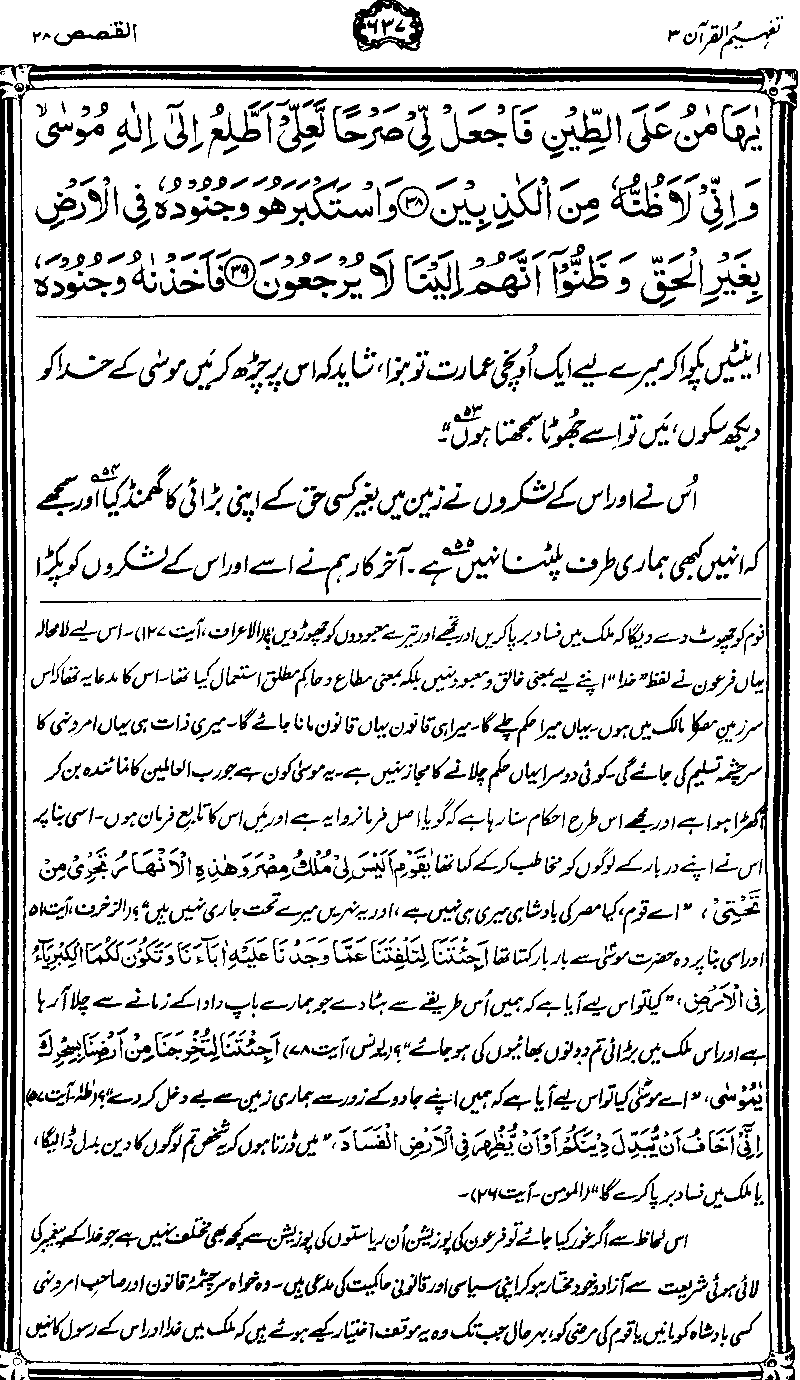 تفہیم القرآن ۳
۶۳۷
القصص ۲۸
یٰهَامٰنُ عَلَی الطِّیْنِ فَاجْعَلْ لِّیْ صَرْحًا لَّعَلِّیْۤ اَطَّلِعُ اِلٰۤی اِلٰهِ مُوْسٰیۙ
وَ اِنِّیْ لَاَظُنُّهٗ مِنَ الْكٰذِبِیْنَ ﴿۳۸﴾ وَاسْتَكْبَرَ هُوَ وَ جُنُوْدُهٗ فِی الْاَرْضِ
بِغَیْرِ الْحَقِّ وَ ظَنُّوْۤا اَنَّهُمْ اِلَیْنَا لَا یُرْجَعُوْنَ ﴿۳۹﴾ فَاَخَذْنٰهُ وَ جُنُوْدَهٗ
اینٹیں پکوا کر میرے لیے ایک اُونچی عمارت تو بنوا، شاید کہ اس پر چڑھ کر مَیں موسیٰ کے خدا کو
دیکھ سکوں، مَیں تو اسے جُھوٹا سمجھتا ہوں۵۳“۔
اُس نے اور اس کے لشکروں نے زمین میں بغیر کسی حق کے اپنی بڑائی کا گھمنڈ کیا۵۴ اور سمجھے
کہ انہیں کبھی ہماری طرف پلٹنا نہیں ہے۵۵۔ آخر کار ہم نے اسے اور اس کے لشکروں کو پکڑا
قوم کو چھوٹ دے دیگا کہ ملک میں فساد برپا کریں اور تجھے اور تیرے معبودوں کو چھوڑ دیں؟ (الاعراف، آیت ۱۲۷)۔ اس لیے لامحالہ
یہاں فرعون نے لفظ ”خدا“ اپنے لیے بمعنی خالق و معبود نہیں بلکہ بمعنی مطاع و حاکم مطلق استعمال کیا تھا۔ اس کا مدعا یہ تھا کہ اس
سرزمینِ مصر کا مالک میں ہوں۔ یہاں میرا حکم چلے گا۔ میرا ہی قانون یہاں قانون مانا جائے گا۔ میری ذات ہی یہاں امر و نہی کا
سرچشمہ تسلیم کی جائے گی۔ کوئی دوسرا یہاں حکم چلانے کا مجاز نہیں ہے۔ یہ موسیٰ کون ہے جو رب العالمین کا نمائندہ بن کر
آ کھڑا ہوا ہے اور مجھے اس طرح احکام سنا رہا ہے کہ گویا اصل فرمانروا یہ ہے اور مَیں اس کا تابع فرمان ہوں۔ اسی بنا پر
اس نے اپنے دربار کے لوگوں کو مخاطب کر کے کہا تھا یٰقَوْمِ اَلَیْسَ لِیْ مُلْكُ مِصْرَ وَ هٰذِهِ الْاَنْهَارُ تَجْرِیْ مِنْ
تَحْتِیْ، ”اے قوم، کیا مصر کی بادشاہی میری ہی نہیں ہے، اور یہ نہریں میرے تحت جاری نہیں ہیں“؟ (الزخرف، آیت ۵۱)
اور اسی بنا پر وہ حضرت موسیٰؑ سے بار بار کہتا تھا اَجِئْتَنَا لِتَلْفِتَنَا عَمَّا وَجَدْنَا عَلَیْهِ اٰبَآءَنَا وَ تَكُوْنَ لَكُمَا الْكِبْرِیَآءُ
فِی الْاَرْضِ، ”کیا تو اس لیے آیا ہے کہ ہمیں اُس طریقے سے ہٹا دے جو ہمارے باپ دادا کے زمانے سے چلا آ رہا
ہے اور اس ملک میں بڑائی تم دونوں بھائیوں کی ہو جائے“؟ (یونس، آیت ۷۸) اَجِئْتَنَا لِتُخْرِجَنَا مِنْ اَرْضِنَا بِسِحْرِكَ
یٰمُوْسٰی، ”اے موسیٰؑ کیا تو اس لیے آیا ہے کہ ہمیں اپنے جادو کے زور سے ہماری زمین سے بے دخل کر دے“؟ (طٰہٰ۔ آیت ۵۷)
اِنِّیْۤ اَخَافُ اَنْ یُّبَدِّلَ دِیْنَكُمْ اَوْ اَنْ یُّظْهِرَ فِی الْاَرْضِ الْفَسَادَ، ”میں ڈرتا ہوں کہ یہ شخص تم لوگوں کا دین بدل ڈالیگا،
یا ملک میں فساد برپا کرے گا“ (المومن۔ آیت ۲۶)۔
اس لحاظ سے اگر غور کیا جائے تو فرعون کی پوزیشن اُن ریاستوں کی پوزیشن سے کچھ بھی مختلف نہیں ہے جو خدا کے پیغمبر کی
لائی ہوئی شریعت سے آزاد و خود مختار ہو کر اپنی سیاسی اور قانونی حاکمیت کی مدعی ہیں۔ وہ خواہ سرچشمۂ قانون اور صاحبِ امر و نہی
کسی بادشاہ کو مانیں یا قوم کی مرضی کو، بہرحال جب تک وہ یہ موقف اختیار کیے ہوئے ہیں کہ ملک میں خدا اور اس کے رسول کا نہیں